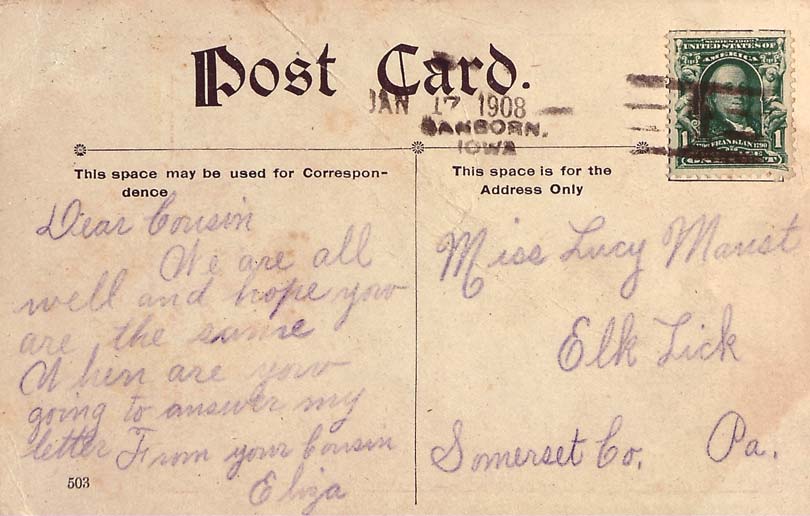 Post Card.
JAN 17 1908
SANBORN,
IOWA
SERIES 1902
UNITED STATES OF
AMERICA
1 FRANKLIN 1790 1
This space may be used for Correspon-
dence
This space is for the
Address Only
Dear Cousin
We are all
well and hope you
are the same
When are you
going to answer my
letter From your Cousin
Eliza
Miss Lucy Maust
Elk Lick
Somerset Co. Pa.
503